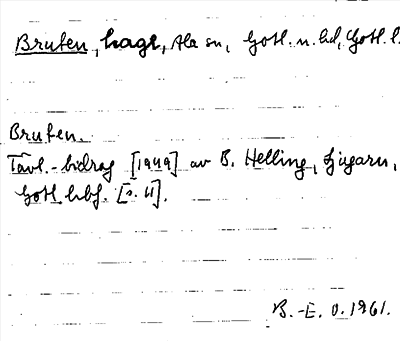 Bruten, hage, Ala sn, Gotl. n. hd, Gotl. l.
Bruten.
Tävl.-bidrag [1949] av B. Helling, Ljugarn,
Gotl. lbf. [s. 4].
B.-E. O. 1961.